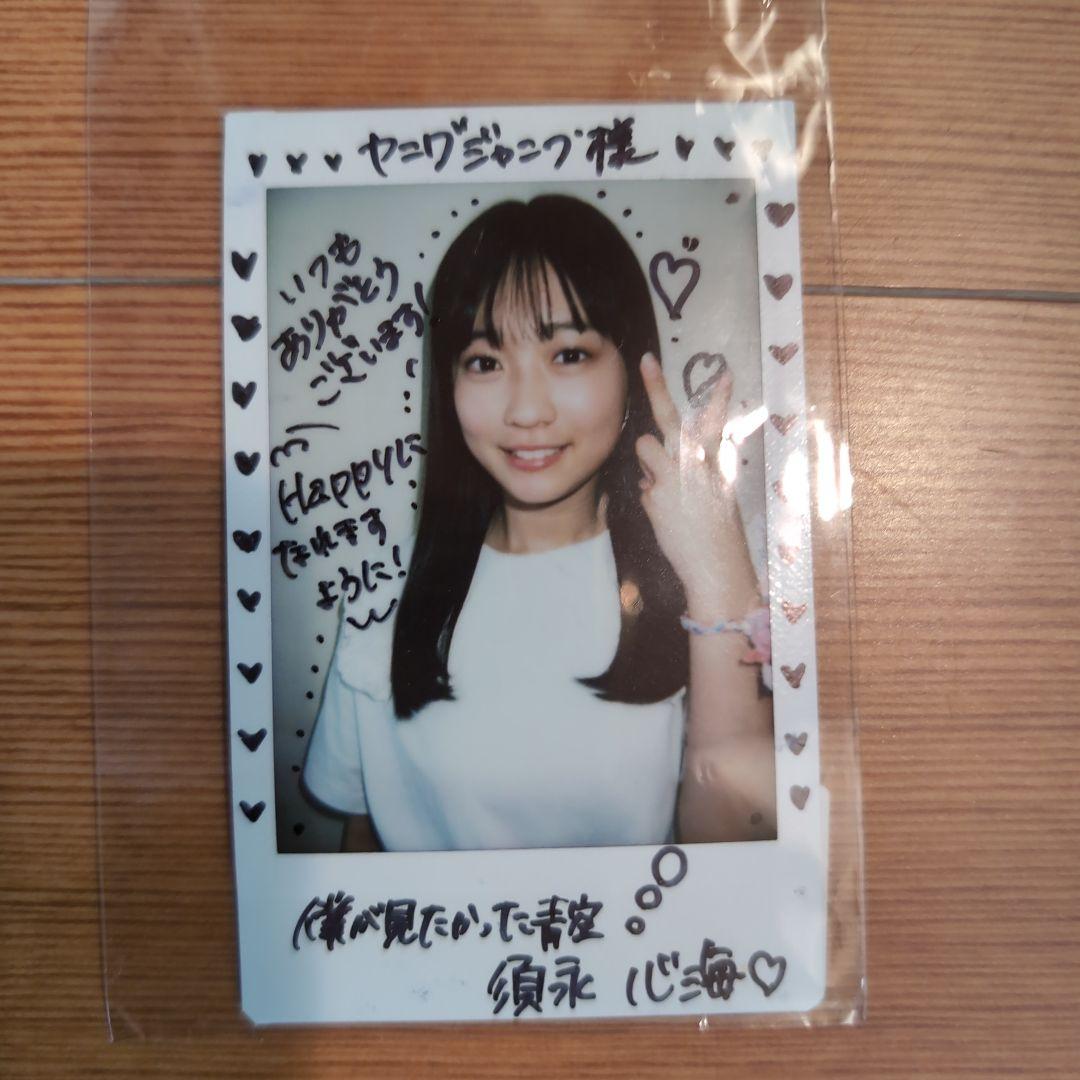 ヤングジャンプ様
いつも
ありがとう
ございます!
Happyに
なれます
ように!
僕が見たかった青空
須永 心海♡